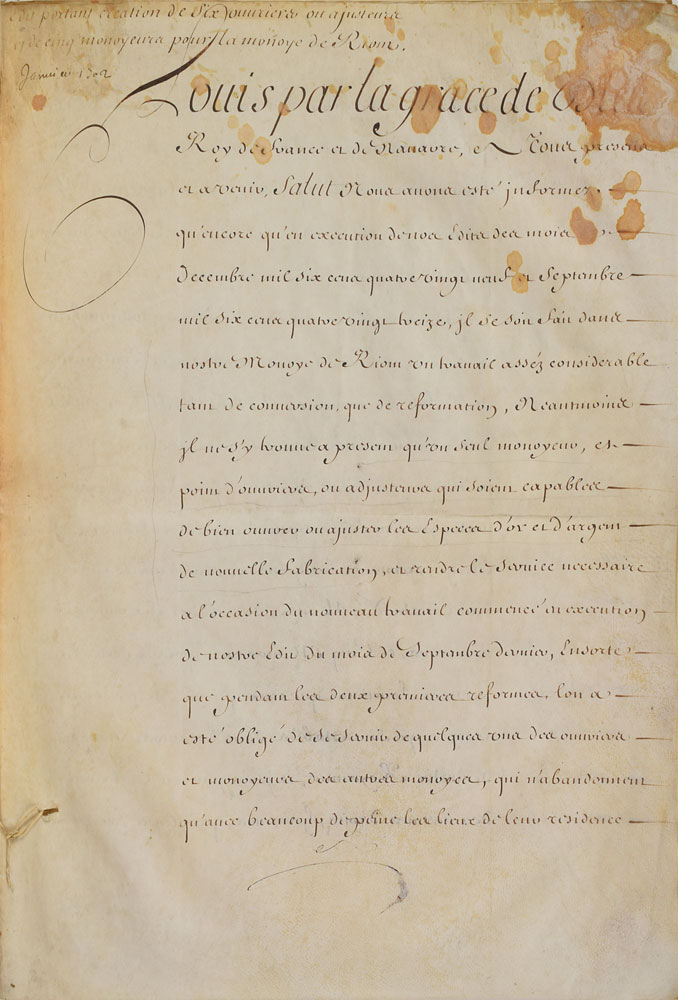 Edit portant création de Six ouvriers ou ajusteurs
et de cinq monoyeurs pour la monoye de Riom.
Janvier 1702
Louis par la grace de Dieu
Roy de france et de Navarre, a Tous presens
et a venir, Salut Nous avons esté informez
qu'encore qu'en execution de nos Edits des mois de
Decembre mil six cens quatre vingt neuf et Septembre
mil six cens quatre vingt treize, il se soit fait dans
nostre Monoye de Riom un travail asséz considerable
tant de conversion, que de reformation, Neantmoins
il ne s'y trouve a present qu'un seul monoyeur, et
point d'ouvriers, ou adjusteurs qui soient capables
de bien ouvrer ou ajuster les Especes d'or et d'argent
de nouvelle fabrication, et rendre le Service necessaire
a l'occasion du nouveau travail commencé en execution
de nostre Edit du mois de Septembre dernier, Ensorte
que pendant les deux premieres reformes, lon a
esté obligé de se servir de quelques uns des ouvriers
et monoyeurs des autres monoyes, qui n'abandonnent
qu'avec beaucoup de peine les lieux de leur residence